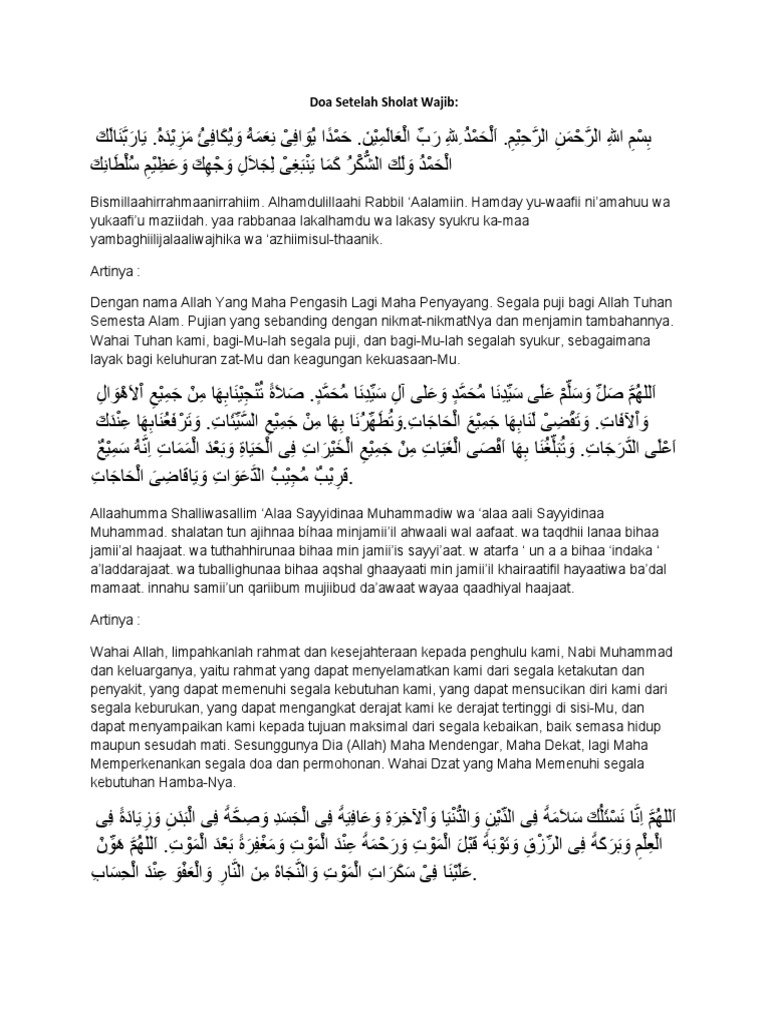 Doa Setelah Sholat Wajib:
بِسْمِ اللهِ الرَّحْمَنِ الرَّحِيْمِ. اَلْحَمْدُ ِللهِ رَبِّ الْعَالَمِيْنَ. حَمْدًا يُوَافِىْ نِعَمَهُ وَيُكَافِىُٔ مَزِيْدَهُ. يَارَبَّنَالَكَ
الْحَمْدُ وَلَكَ الشُّكْرُ كَمَا يَنْبَغِىْ لِجَلاَلِ وَجْهِكَ وَعَظِيْمِ سُلْطَانِكَ
Bismillaahirrahmaanirrahiim. Alhamdulillaahi Rabbil ‘Aalamiin. Hamday yu-waafii ni’amahuu wa
yukaafi’u maziidah. yaa rabbanaa lakalhamdu wa lakasy syukru ka-maa
yambaghiilijalaaliwajhika wa ‘azhiimisul-thaanik.
Artinya :
Dengan nama Allah Yang Maha Pengasih Lagi Maha Penyayang. Segala puji bagi Allah Tuhan
Semesta Alam. Pujian yang sebanding dengan nikmat-nikmatNya dan menjamin tambahannya.
Wahai Tuhan kami, bagi-Mu-lah segala puji, dan bagi-Mu-lah segalah syukur, sebagaimana
layak bagi keluhuran zat-Mu dan keagungan kekuasaan-Mu.
اَللهُمَّ صَلِّ وَسَلِّمْ عَلَى سَيِّدِنَا مُحَمَّدٍ وَعَلَى آلِ سَيِّدِنَا مُحَمَّدٍ. صَلاَةً تُنْجِيْنَابِهَا مِنْ جَمِيْعِ اْلاَهْوَالِ
وَاْلآفَاتِ. وَتَقْضِىْ لَنَابِهَا جَمِيْعَ الْحَاجَاتِ.وَتُطَهِّرُنَا بِهَا مِنْ جَمِيْعِ السَّيِّئَاتِ. وَتَرْفَعُنَابِهَا عِنْدَكَ
اَعْلَى الدَّرَجَاتِ. وَتُبَلِّغُنَا بِهَا اَقْصَى الْغَيَاتِ مِنْ جَمِيْعِ الْخَيْرَاتِ فِى الْحَيَاةِ وَبَعْدَ الْمَمَاتِ اِنَّهُ سَمِيْعٌ
قَرِيْبٌ مُجِيْبُ الدَّعَوَاتِ وَيَاقَاضِىَ الْحَاجَاتِ.
Allaahumma Shalliwasallim ‘Alaa Sayyidinaa Muhammadiw wa ‘alaa aali Sayyidinaa
Muhammad. shalatan tun ajihnaa bíhaa minjamii’il ahwaali wal aafaat. wa taqdhii lanaa bihaa
jamii’al haajaat. wa tuthahhirunaa bihaa min jamii’is sayyi’aat. w atarfa ‘ un a a bihaa ‘indaka ‘
a’laddarajaat. wa tuballighunaa bihaa aqshal ghaayaati min jamii’il khairaatifil hayaatiwa ba’dal
mamaat. innahu samii’un qariibum mujiibud da’awaat wayaa qaadhiyal haajaat.
Artinya :
Wahai Allah, limpahkanlah rahmat dan kesejahteraan kepada penghulu kami, Nabi Muhammad
dan keluarganya, yaitu rahmat yang dapat menyelamatkan kami dari segala ketakutan dan
penyakit, yang dapat memenuhi segala kebutuhan kami, yang dapat mensucikan diri kami dari
segala keburukan, yang dapat mengangkat derajat kami ke derajat tertinggi di sisi-Mu, dan
dapat menyampaikan kami kepada tujuan maksimal dari segala kebaikan, baik semasa hidup
maupun sesudah mati. Sesunggunya Dia (Allah) Maha Mendengar, Maha Dekat, lagi Maha
Memperkenankan segala doa dan permohonan. Wahai Dzat yang Maha Memenuhi segala
kebutuhan Hamba-Nya.
اَللهُمَّ اِنَّا نَسْئَلُكَ سَلاَمَةً فِى الدِّيْنِ وَالدُّنْيَا وَاْلآخِرَةِ وَعَافِيَةً فِى الْجَسَدِ وَصِحَّةً فِى الْبَدَنِ وَزِيَادَةً فِى
الْعِلْمِ وَبَرَكَةً فِى الرِّزْقِ وَتَوْبَةً قَبْلَ الْمَوْتِ وَرَحْمَةً عِنْدَ الْمَوْتِ وَمَغْفِرَةً بَعْدَ الْمَوْتِ. اَللهُمَّ هَوِّنْ
عَلَيْنَا فِىْ سَكَرَاتِ الْمَوْتِ وَالنَّجَاةَ مِنَ النَّارِ وَالْعَفْوَ عِنْدَ الْحِسَابِ.